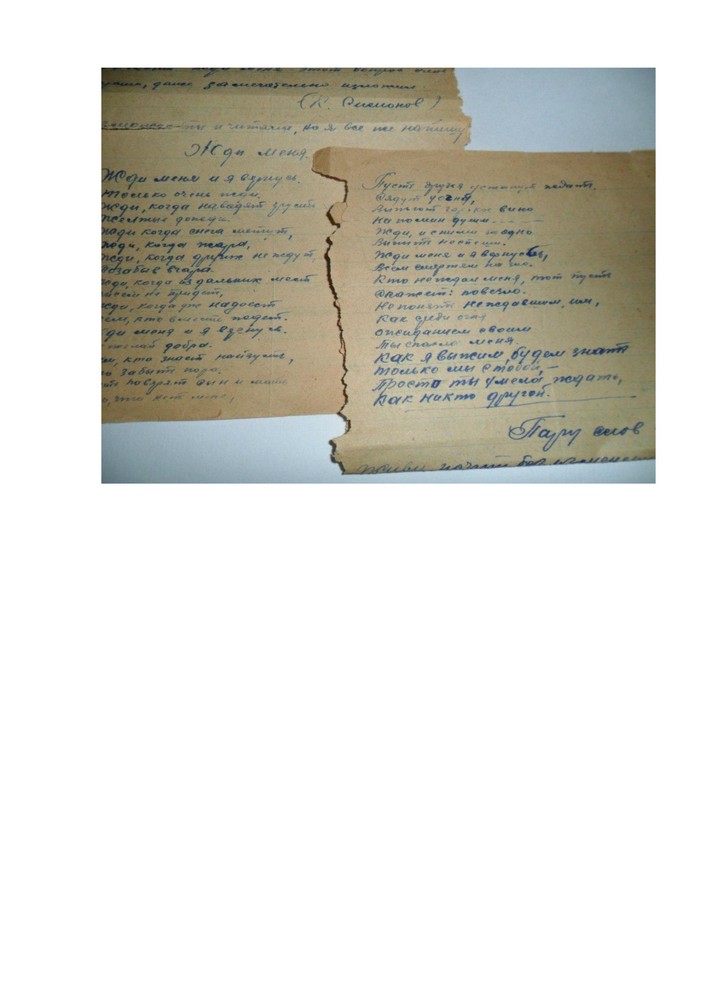 даже замечательно изложил
(К. Симонов)
ты и читала, но я все же напишу
Жди меня.
Жди меня и я вернусь.
Только очень жди.
Жди, когда наводят грусть
Желтые дожди.
Жди когда снега метут,
Жди, когда жара,
Жди, когда других не ждут,
Позабыв вчера.
Жди, когда из дальних мест
Писем не придет,
Жди, когда уж надоест
Всем, кто вместе ждет.
Жди меня и я вернусь.
Не желай добра.
Всем, кто знает наизусть,
Что забыть пора.
поверят сын и мать
что нет меня,
Пусть друзья устанут ждать,
Сядут у огня,
Выпьют горькое вино
На помин души
Жди, и с ними заодно
Выпить не спеши.
Жди меня и я вернусь,
Всем смертям на зло.
Кто не ждал меня, тот пусть
Скажет: повезло.
Не понять не ждавшим, им,
Как среди огня
Ожиданием своим
Ты спасла меня.
Как я выжил, будем знать
Только мы с тобой,
Просто ты умела ждать,
Как никто другой.
Пару слов